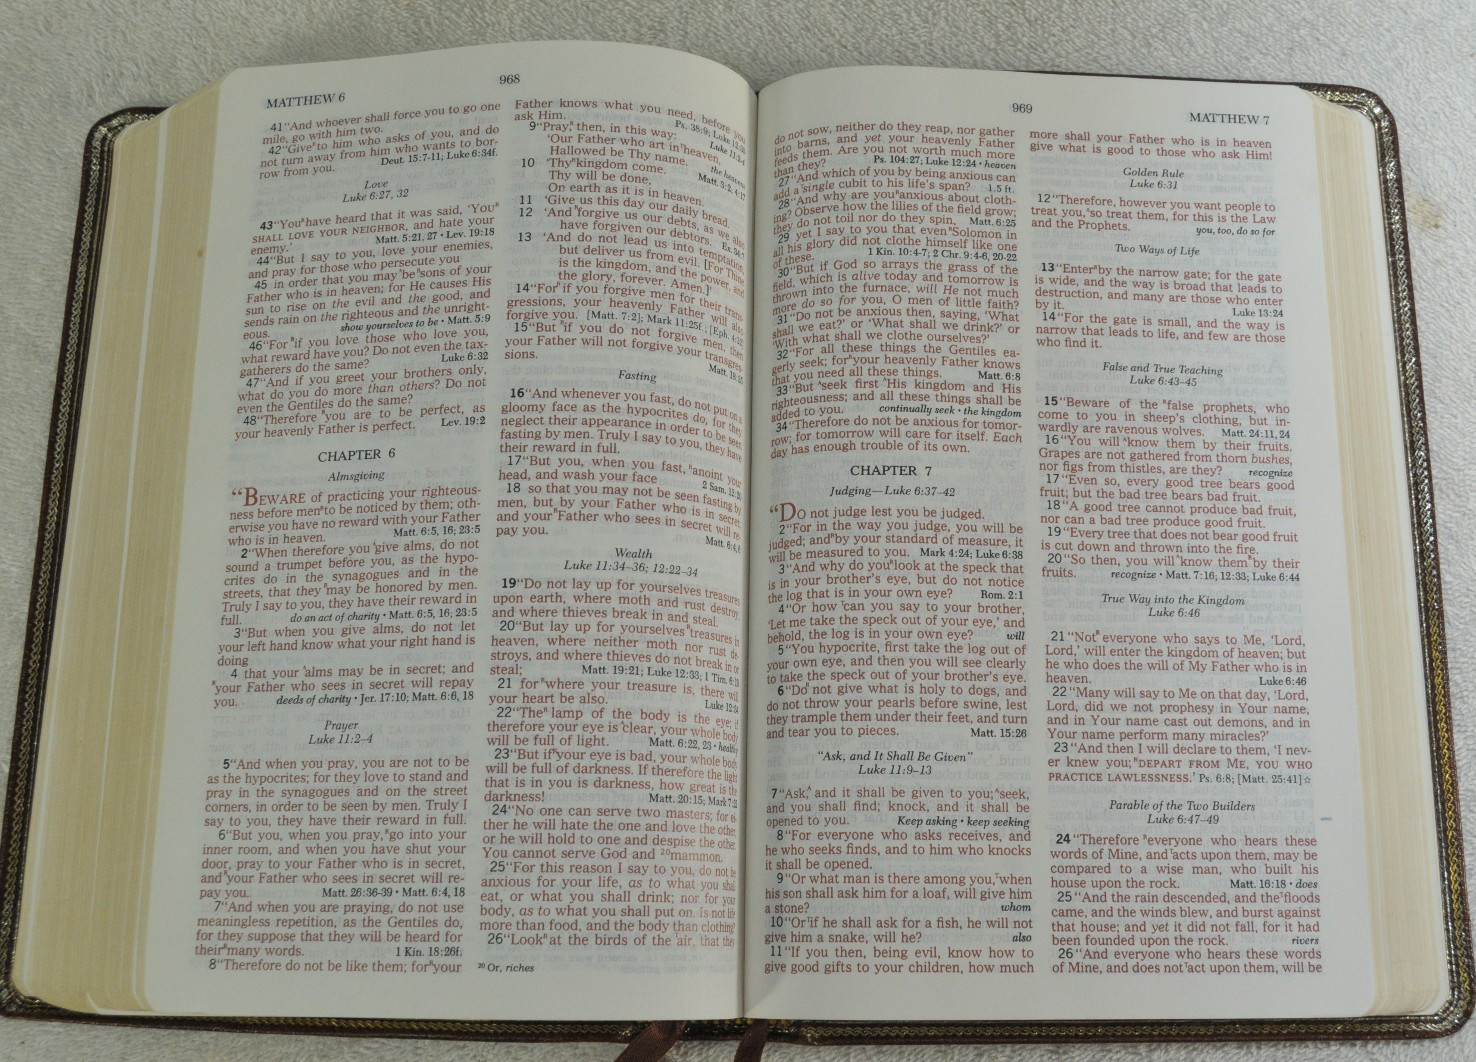 MATTHEW 6
968
41"And whoever shall force you to go one
mile, go with him two.
42"Give to him who asks of you, and do
not turn away from him who wants to bor-
row from you. Deut. 15:7-11; Luke 6:34f.
Love
Luke 6:27, 32
43"You have heard that it was said, 'YOU
SHALL LOVE YOUR NEIGHBOR, and hate your
enemy.' Matt. 5:21, 27 • Lev. 19:18
44"But I say to you, love your enemies,
and pray for those who persecute you
45 in order that you may be sons of your
Father who is in heaven; for He causes His
sun to rise on the evil and the good, and
sends rain on the righteous and the unright-
eous. show yourselves to be • Matt. 5:9
46"For if you love those who love you,
what reward have you? Do not even the tax-
gatherers do the same? Luke 6:32
47"And if you greet your brothers only,
what do you do more than others? Do not
even the Gentiles do the same?
48"Therefore you are to be perfect, as
your heavenly Father is perfect. Lev. 19:2
CHAPTER 6
Almsgiving
"BEWARE of practicing your righteous-
ness before men to be noticed by them; oth-
erwise you have no reward with your Father
who is in heaven. Matt. 6:5, 16; 23:5
2"When therefore you give alms, do not
sound a trumpet before you, as the hypo-
crites do in the synagogues and in the
streets, that they may be honored by men.
Truly I say to you, they have their reward in
full. do an act of charity • Matt. 6:5, 16; 23:5
3"But when you give alms, do not let
your left hand know what your right hand is
doing
4 that your alms may be in secret; and
your Father who sees in secret will repay
you. deeds of charity • Jer. 17:10; Matt. 6:6, 18
Prayer
Luke 11:2-4
5"And when you pray, you are not to be
as the hypocrites; for they love to stand and
pray in the synagogues and on the street
corners, in order to be seen by men. Truly I
say to you, they have their reward in full.
6"But you, when you pray, go into your
inner room, and when you have shut your
door, pray to your Father who is in secret,
and your Father who sees in secret will re-
pay you. Matt. 26:36-39 • Matt. 6:4, 18
7"And when you are praying, do not use
meaningless repetition, as the Gentiles do,
for they suppose that they will be heard for
their many words. 1 Kin. 18:26f.
8"Therefore do not be like them; for your
Father knows what you need, before you
ask Him. Ps. 38:9; Luke
9"Pray, then, in this way: Luke 11:2-4
'Our Father who art in heaven,
Hallowed be Thy name. the heavens
10 'Thy kingdom come. Matt. 3:2; 4:17
Thy will be done,
On earth as it is in heaven.
11 'Give us this day our daily bread.
12 'And forgive us our debts, as we also
have forgiven our debtors. Ex. 34:7
13 'And do not lead us into temptation,
but deliver us from evil. [For Thine
is the kingdom, and the power, and
the glory, forever. Amen.]'
14"For if you forgive men for their trans-
gressions, your heavenly Father will also
forgive you. [Matt. 7:2]; Mark 11:25f.; [Eph. 4:32
15"But if you do not forgive men, then
your Father will not forgive your transgres-
sions. Matt. 18:35
Fasting
16"And whenever you fast, do not put on a
gloomy face as the hypocrites do, for they
neglect their appearance in order to be seen
fasting by men. Truly I say to you, they have
their reward in full.
17"But you, when you fast, anoint your
head, and wash your face 2 Sam. 12:20
18 so that you may not be seen fasting by
men, but by your Father who is in secret;
and your Father who sees in secret will re-
pay you. Matt. 6:4, 6
Wealth
Luke 11:34-36; 12:22-34
19"Do not lay up for yourselves treasures
upon earth, where moth and rust destroy,
and where thieves break in and steal.
20"But lay up for yourselves treasures in
heaven, where neither moth nor rust de-
stroys, and where thieves do not break in or
steal; Matt. 19:21; Luke 12:33; 1 Tim. 6:19
21 for where your treasure is, there will
your heart be also. Luke 12:34
22"The lamp of the body is the eye; if
therefore your eye is clear, your whole body
will be full of light. Matt. 6:22, 23 • healthy
23"But if your eye is bad, your whole body
will be full of darkness. If therefore the light
that is in you is darkness, how great is the
darkness! Matt. 20:15; Mark 7:22
24"No one can serve two masters; for ei-
ther he will hate the one and love the other,
or he will hold to one and despise the other.
You cannot serve God and 20mammon.
25"For this reason I say to you, do not be
anxious for your life, as to what you shall
eat, or what you shall drink; nor for your
body, as to what you shall put on. Is not life
more than food, and the body than clothing?
26"Look at the birds of the air, that they
20 Or, riches
969
MATTHEW 7
do not sow, neither do they reap, nor gather
into barns, and yet your heavenly Father
feeds them. Are you not worth much more
than they? Ps. 104:27; Luke 12:24 • heaven
27"And which of you by being anxious can
add a single cubit to his life's span? 1.5 ft.
28"And why are you anxious about cloth-
ing? Observe how the lilies of the field grow;
they do not toil nor do they spin. Matt. 6:25
29 yet I say to you that even Solomon in
all his glory did not clothe himself like one
of these. 1 Kin. 10:4-7; 2 Chr. 9:4-6, 20-22
30"But if God so arrays the grass of the
field, which is alive today and tomorrow is
thrown into the furnace, will He not much
more do so for you, O men of little faith?
31"Do not be anxious then, saying, 'What
shall we eat?' or 'What shall we drink?' or
'With what shall we clothe ourselves?'
32"For all these things the Gentiles ea-
gerly seek; for your heavenly Father knows
that you need all these things. Matt. 6:8
33"But seek first His kingdom and His
righteousness; and all these things shall be
added to you. continually seek • the kingdom
34"Therefore do not be anxious for tomor-
row; for tomorrow will care for itself. Each
day has enough trouble of its own.
CHAPTER 7
Judging—Luke 6:37-42
"DO not judge lest you be judged.
2"For in the way you judge, you will be
judged; and by your standard of measure, it
will be measured to you. Mark 4:24; Luke 6:38
3"And why do you look at the speck that
is in your brother's eye, but do not notice
the log that is in your own eye? Rom. 2:1
4"Or how can you say to your brother,
'Let me take the speck out of your eye,' and
behold, the log is in your own eye? will
5"You hypocrite, first take the log out of
your own eye, and then you will see clearly
to take the speck out of your brother's eye.
6"Do not give what is holy to dogs, and
do not throw your pearls before swine, lest
they trample them under their feet, and turn
and tear you to pieces. Matt. 15:26
"Ask, and It Shall Be Given"
Luke 11:9-13
7"Ask, and it shall be given to you; seek,
and you shall find; knock, and it shall be
opened to you. Keep asking • keep seeking
8"For everyone who asks receives, and
he who seeks finds, and to him who knocks
it shall be opened.
9"Or what man is there among you, when
his son shall ask him for a loaf, will give him
a stone? whom
10"Or if he shall ask for a fish, he will not
give him a snake, will he? also
11"If you then, being evil, know how to
give good gifts to your children, how much
more shall your Father who is in heaven
give what is good to those who ask Him!
Golden Rule
Luke 6:31
12"Therefore, however you want people to
treat you, so treat them, for this is the Law
and the Prophets. you, too, do so for
Two Ways of Life
13"Enter by the narrow gate; for the gate
is wide, and the way is broad that leads to
destruction, and many are those who enter
by it. Luke 13:24
14"For the gate is small, and the way is
narrow that leads to life, and few are those
who find it.
False and True Teaching
Luke 6:43-45
15"Beware of the false prophets, who
come to you in sheep's clothing, but in-
wardly are ravenous wolves. Matt. 24:11, 24
16"You will know them by their fruits.
Grapes are not gathered from thorn bushes,
nor figs from thistles, are they? recognize
17"Even so, every good tree bears good
fruit; but the bad tree bears bad fruit.
18"A good tree cannot produce bad fruit,
nor can a bad tree produce good fruit.
19"Every tree that does not bear good fruit
is cut down and thrown into the fire.
20"So then, you will know them by their
fruits. recognize • Matt. 7:16; 12:33; Luke 6:44
True Way into the Kingdom
Luke 6:46
21"Not everyone who says to Me, 'Lord,
Lord,' will enter the kingdom of heaven; but
he who does the will of My Father who is in
heaven. Luke 6:46
22"Many will say to Me on that day, 'Lord,
Lord, did we not prophesy in Your name,
and in Your name cast out demons, and in
Your name perform many miracles?'
23"And then I will declare to them, 'I nev-
er knew you; DEPART FROM ME, YOU WHO
PRACTICE LAWLESSNESS.' Ps. 6:8; [Matt. 25:41]☆
Parable of the Two Builders
Luke 6:47-49
24"Therefore everyone who hears these
words of Mine, and acts upon them, may be
compared to a wise man, who built his
house upon the rock. Matt. 16:18 • does
25"And the rain descended, and the floods
came, and the winds blew, and burst against
that house; and yet it did not fall, for it had
been founded upon the rock. rivers
26"And everyone who hears these words
of Mine, and does not act upon them, will be